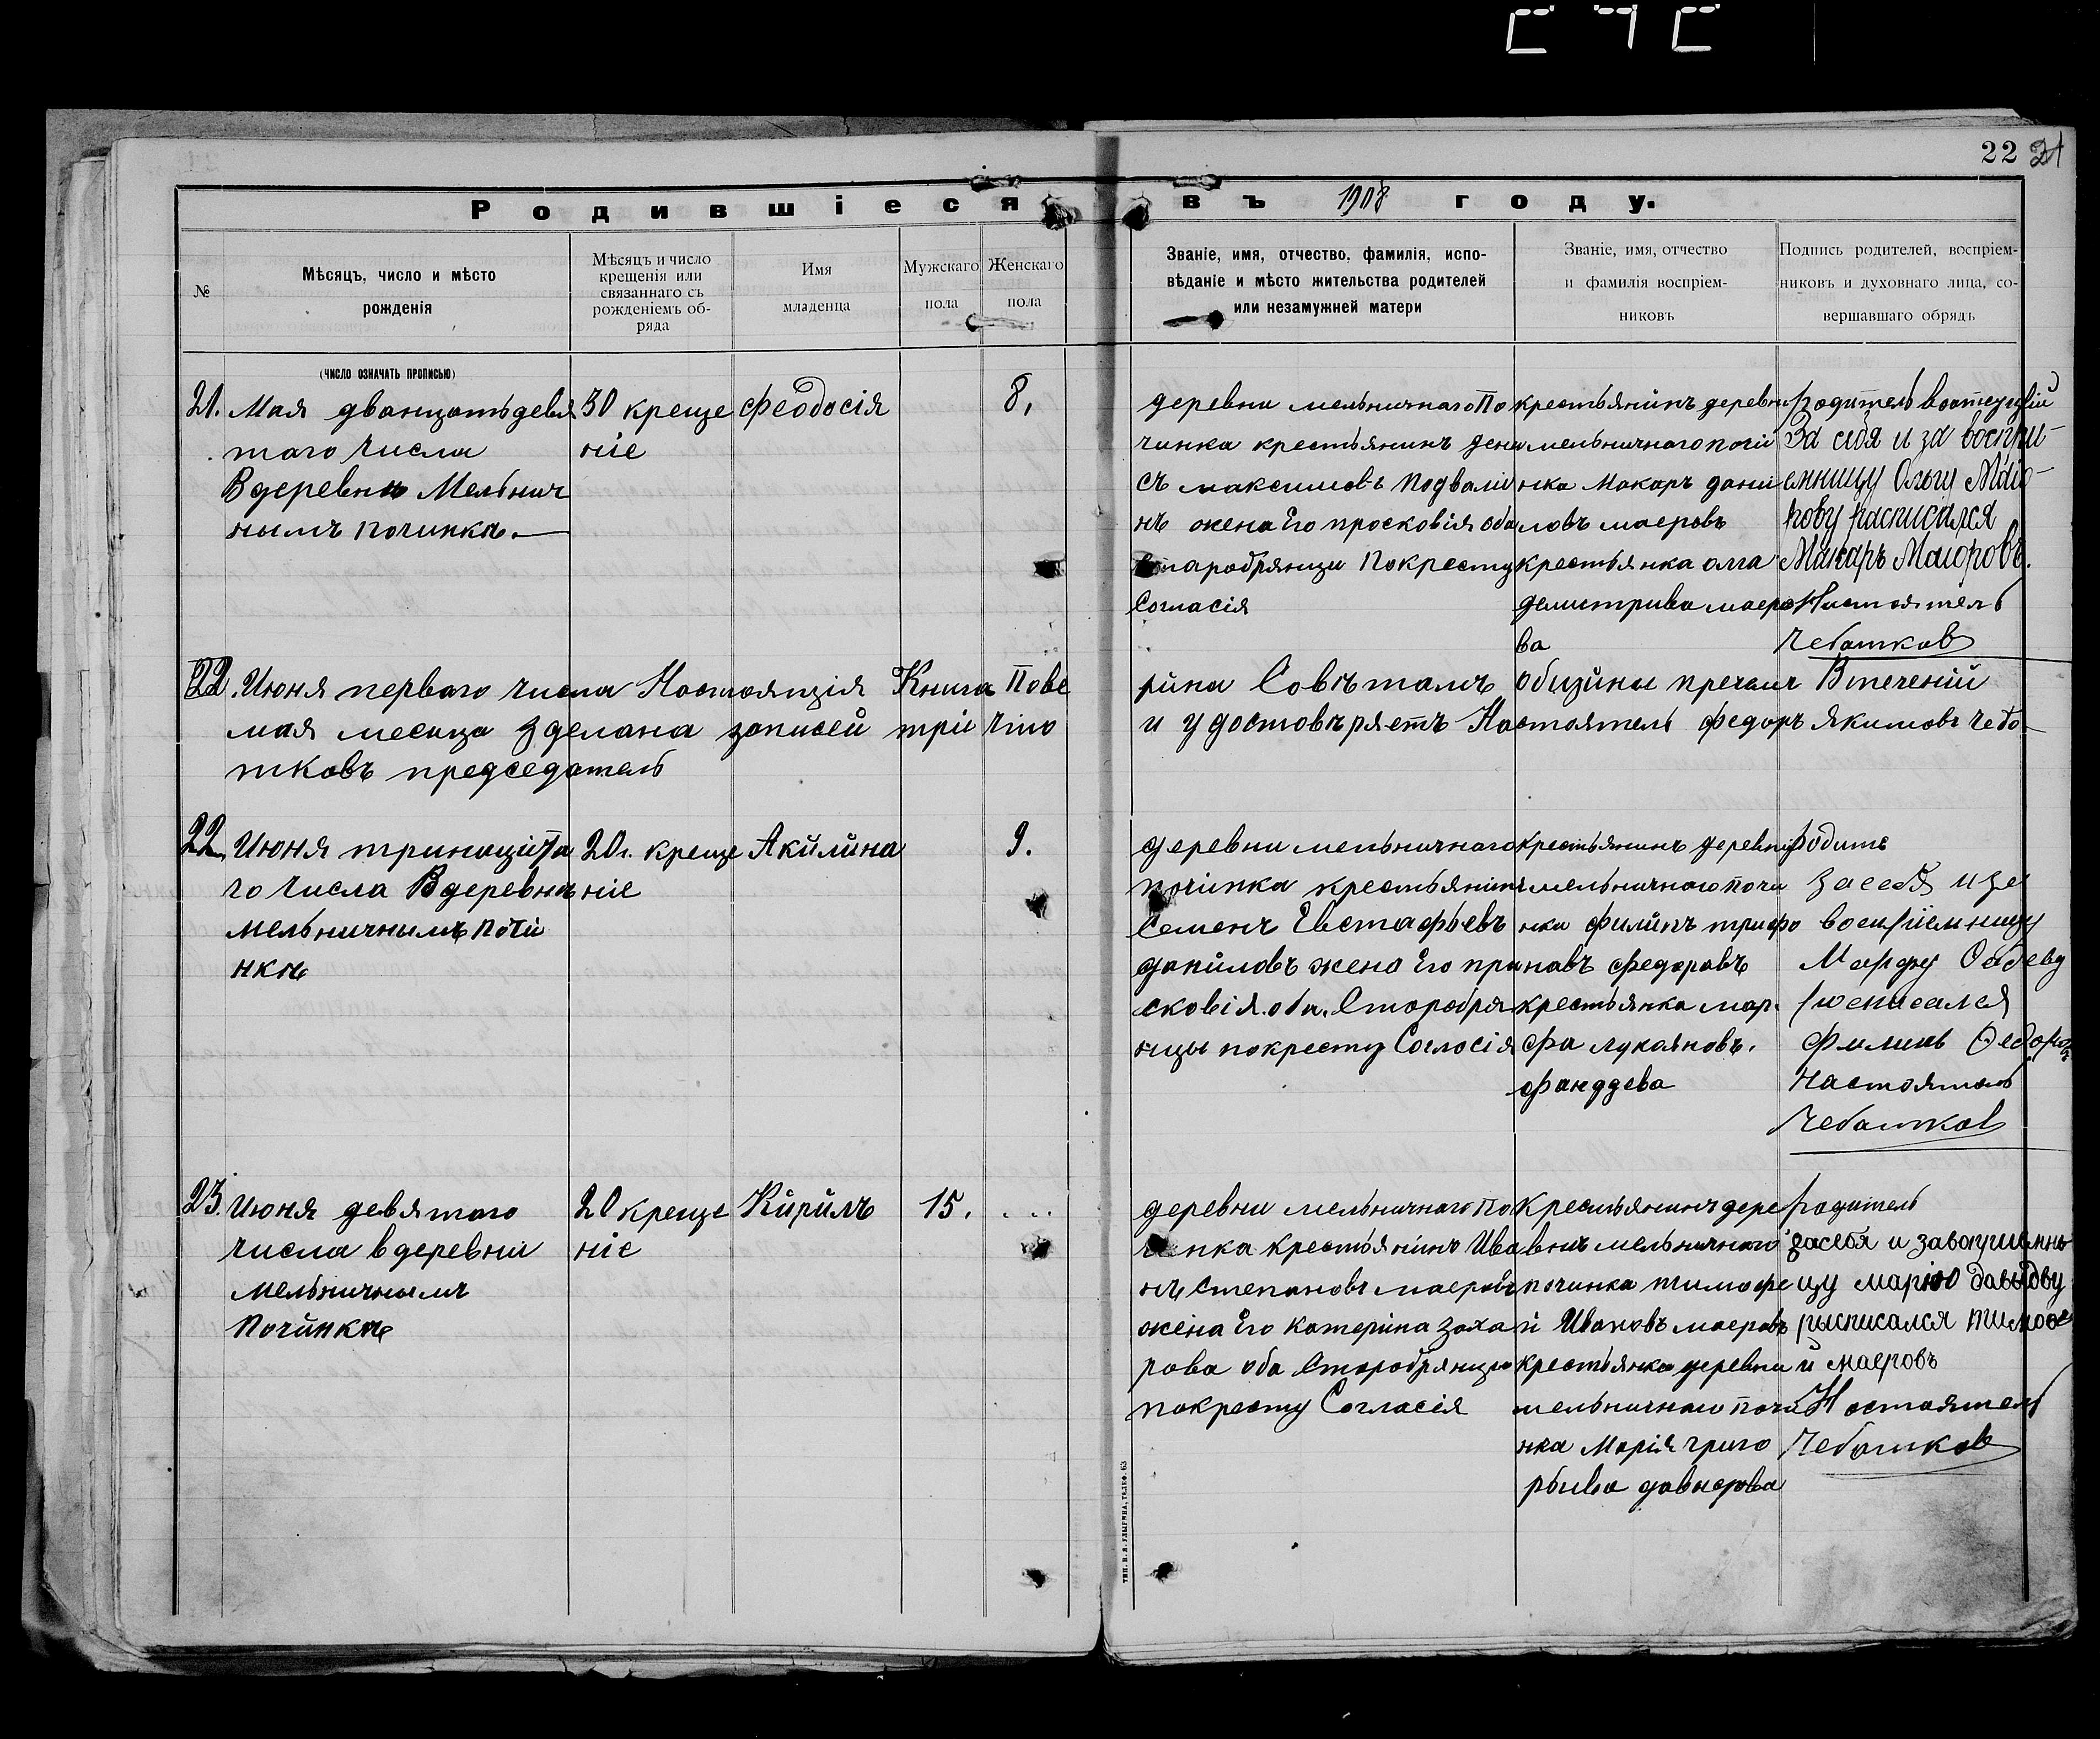 22 21
Родившіеся въ 1908 году.
№
Мѣсяцъ, число и мѣсто
рожденія
Мѣсяцъ и число
крещенія или
связаннаго съ
рожденіемъ об-
ряда
Имя
младенца
Мужскаго
пола
Женскаго
пола
Званіе, имя, отчество, фамилія, испо-
вѣданіе и мѣсто жительства родителей
или незамужней матери
Званіе, имя, отчество
и фамилія воспріем-
никовъ
Подпись родителей, воспріем-
никовъ и духовнаго лица, со-
вершавшаго обрядъ
(число означать прописью)
21. Мая дванцатьдевя
таго числа
Вдеревнъ Мельнич
нымъ починкѣ.
30 креще
ніе
Феодосія
8,
деревни мельничнаго По
чинка крестьянинъ дени
съ максимовъ Подвали
нъ жена Его просковія оба
старобрянци Покресту
Согласія
крестьянинъ деревн
мельничнаго почи
нка Макаръ дани
ловъ маеровъ
крестьянка олга
демитрива маеро
ва
родитель
За себя и за воспри-
емницу Ольгу Маіо-
рову расписался
Макаръ Маіоровъ.
Настоятель
Чебатков
22. Июня перваго числа Настоящія Книга Пове рина Совѣтамъ общины пречем Втеченій
мая месеца зделана записей три что и удостовѣряетъ Настоятель федоръ якимовъ чебо
тковъ председатель
22. Июня тринацата
го числа Вдеревнѣ
мельничнымъ почи
нкѣ
20. креще
ніе
Акйлйна
9.
деревни мельничнаго
почінка крестьянинъ
Семенъ Евстафьевъ
данйловъ жена Его пра
сковія. оба. Старобря
нцы покресту Согласія
крестьянинъ деревни
мельничнаго почи
нка филйпъ трифо
новъ федоровъ
крестьянка мар
фа лукояновъ.
фаддева
родите
засебя и за
воспріемницу
Марфу
росписался
Филипъ Ѳедоровъ
Настоятель
Чебатков
23. Июня девятаго
числа вдеревни
мельничнымъ
Починкѣ
20 креще
ніе
Кйрйлъ
15.
...
деревни мельничнаго по
чинка крестьянинъ Ива
нъ Степановъ маеровъ
жена Его катеріна заха
рова оба Старобрянци
покресту Согласія
Крестьянинъ дере
внѣ мельничнаго
починка тимофе
й Ивановъ маеровъ
крестьянка деревни
мельничнаго почи
нка Марія григо
рьива давыдова
родитель
засебя и за
цу марію давыдову
рысписался тимофе
й маеровъ
Настоятель
Чебатков